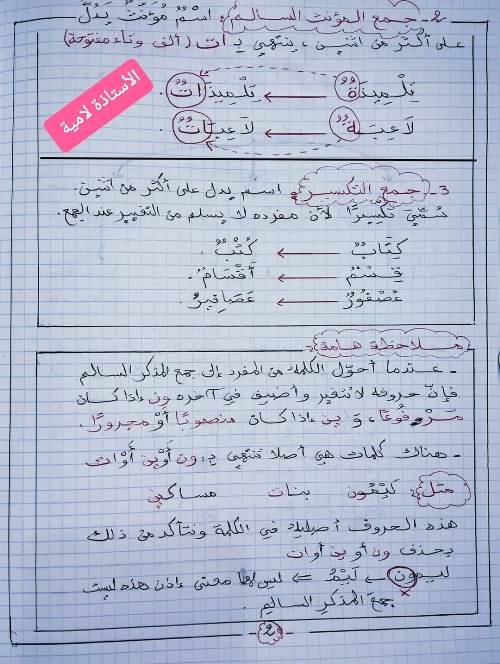 2- جمع المؤنث السالم: اسْمٌ مُؤَنَّثٌ يَدُلُّ
على أكثر من اثنين، ينتهي بـ ات (ألف وتاء مفتوحة)
تِلْمِيذَةٌ ← تِلْمِيذَاتٌ.
لَاعِبَةٌ ← لَاعِبَاتٌ.
الأستاذة لامية
3- جمع التكسير: اسم يدل على أكثر من اثنين.
سُمِّيَ تكْسِيرًا لأن مفرده لا يسلم من التغيير عند الجمع.
كِتَابٌ ← كُتُبٌ.
قِسْمٌ ← أَقْسَامٌ.
عُصْفُورٌ ← عَصَافِيرُ.
ملاحظة هامة:
- عندما أحوّل الكلمة من المفرد إلى جمع المذكر السالم
فإنّ حروفه لا تتغير وأضيف في آخره ون إذا كان
مَرْفُوعًا، وَ ين إذا كان منصوبًا أوْ مجرورًا.
- هناك كلمات هي أصلا تنتهي بـ: ون أَوْ ين أَوْ ات
مثل: لَيْمُون بنات مساكين
هذه الحروف أصلية في الكلمة ونتأكد من ذلك
بحذف ون أو ين أو ات
ليمون ← لَيْمُ ⇐ ليس لها معنى إذن هذه ليست
جمعَ المذكر السالم.
2